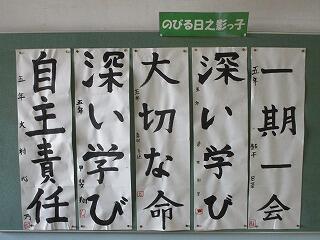 のびる日之影っ子
一期一会
五年
深い学び
大切な命
深い学び
五年
自主責任
三年 大村 心乃